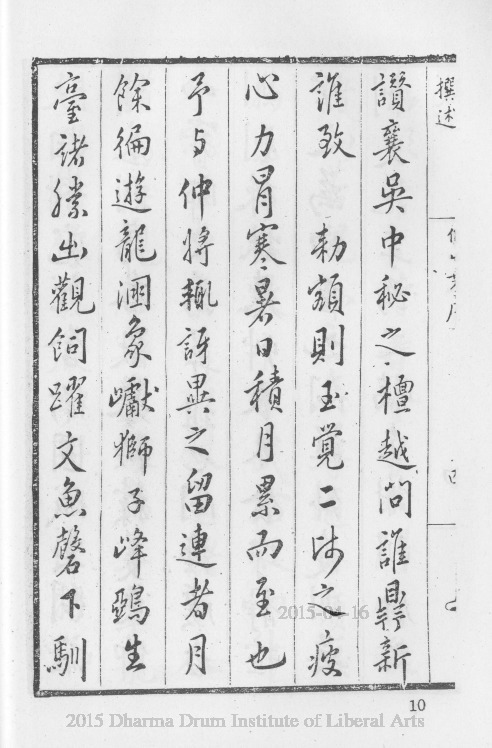 撰述
讚襄吳中秘之檀越問誰鼎新
誰致 勅額則玉覺二師之疲
心力冒寒暑日積月累而至也
予与仲將輒訝異之留連者月
餘徧遊龍淵象巘獅子峰鵶生
臺諸勝出觀飼躍文魚磬下馴
2015-04-16
10
2015 Dharma Drum Institute of Liberal Arts